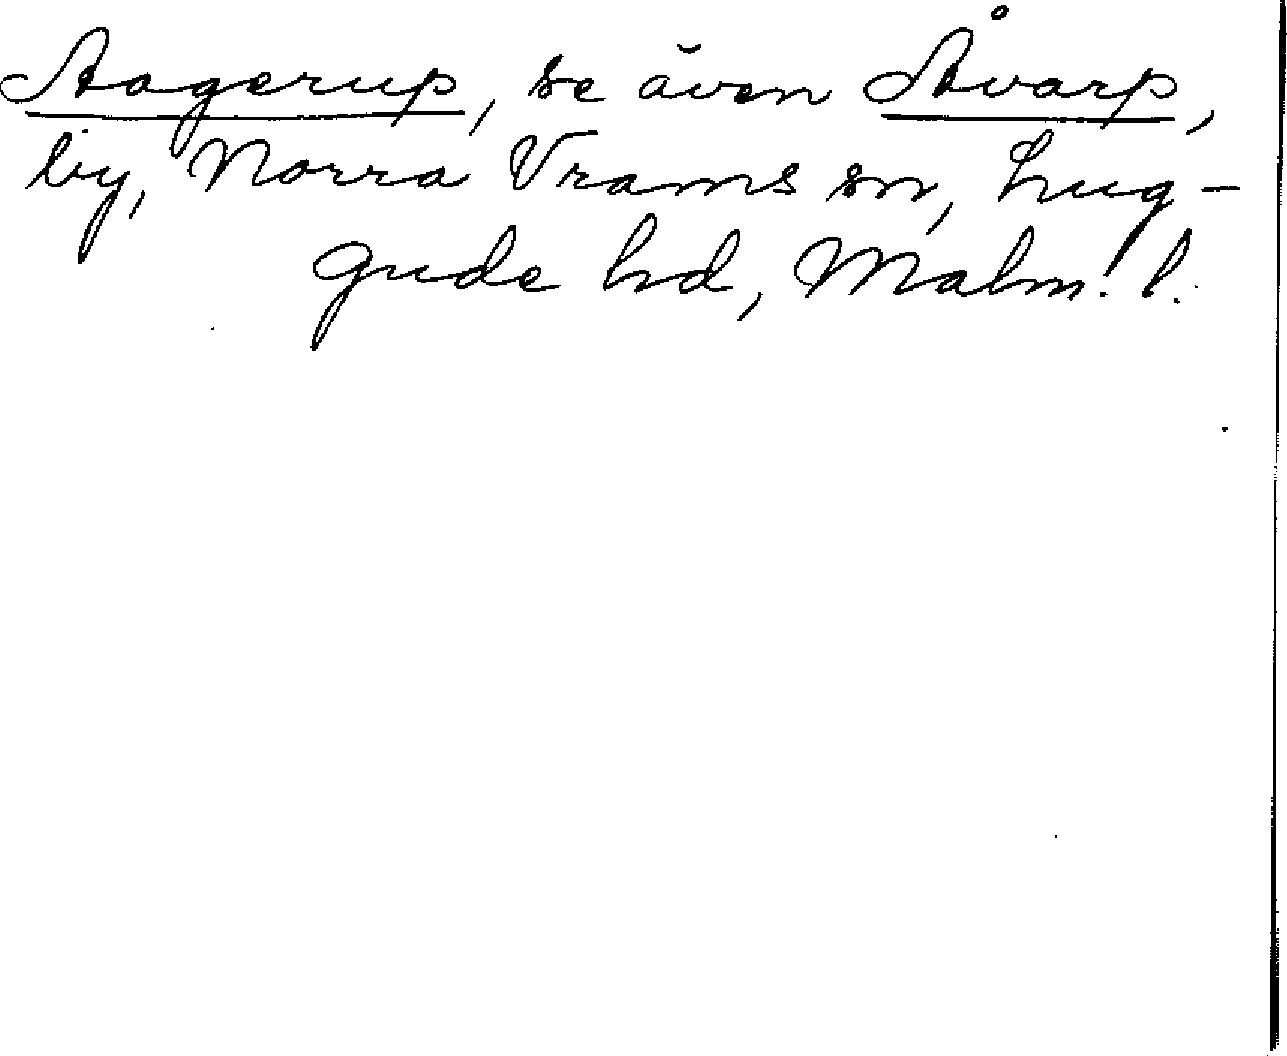 Aagerup, se även Åvarp,
by, Norra Vrams sn, Lug-
gude hd, Malm. l.